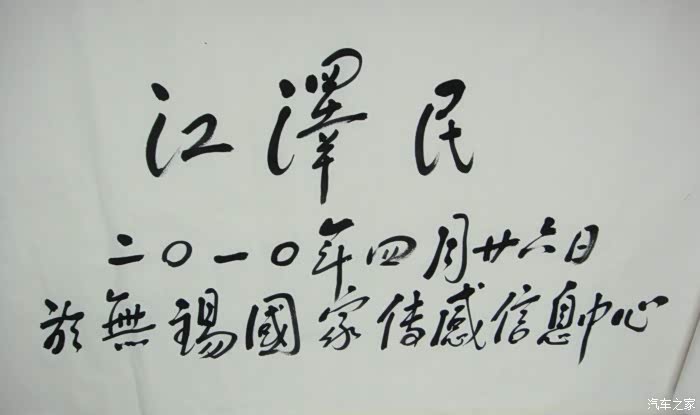 江澤民
二〇一〇年四月廿六日
於無錫國家传感信息中心
汽车之家